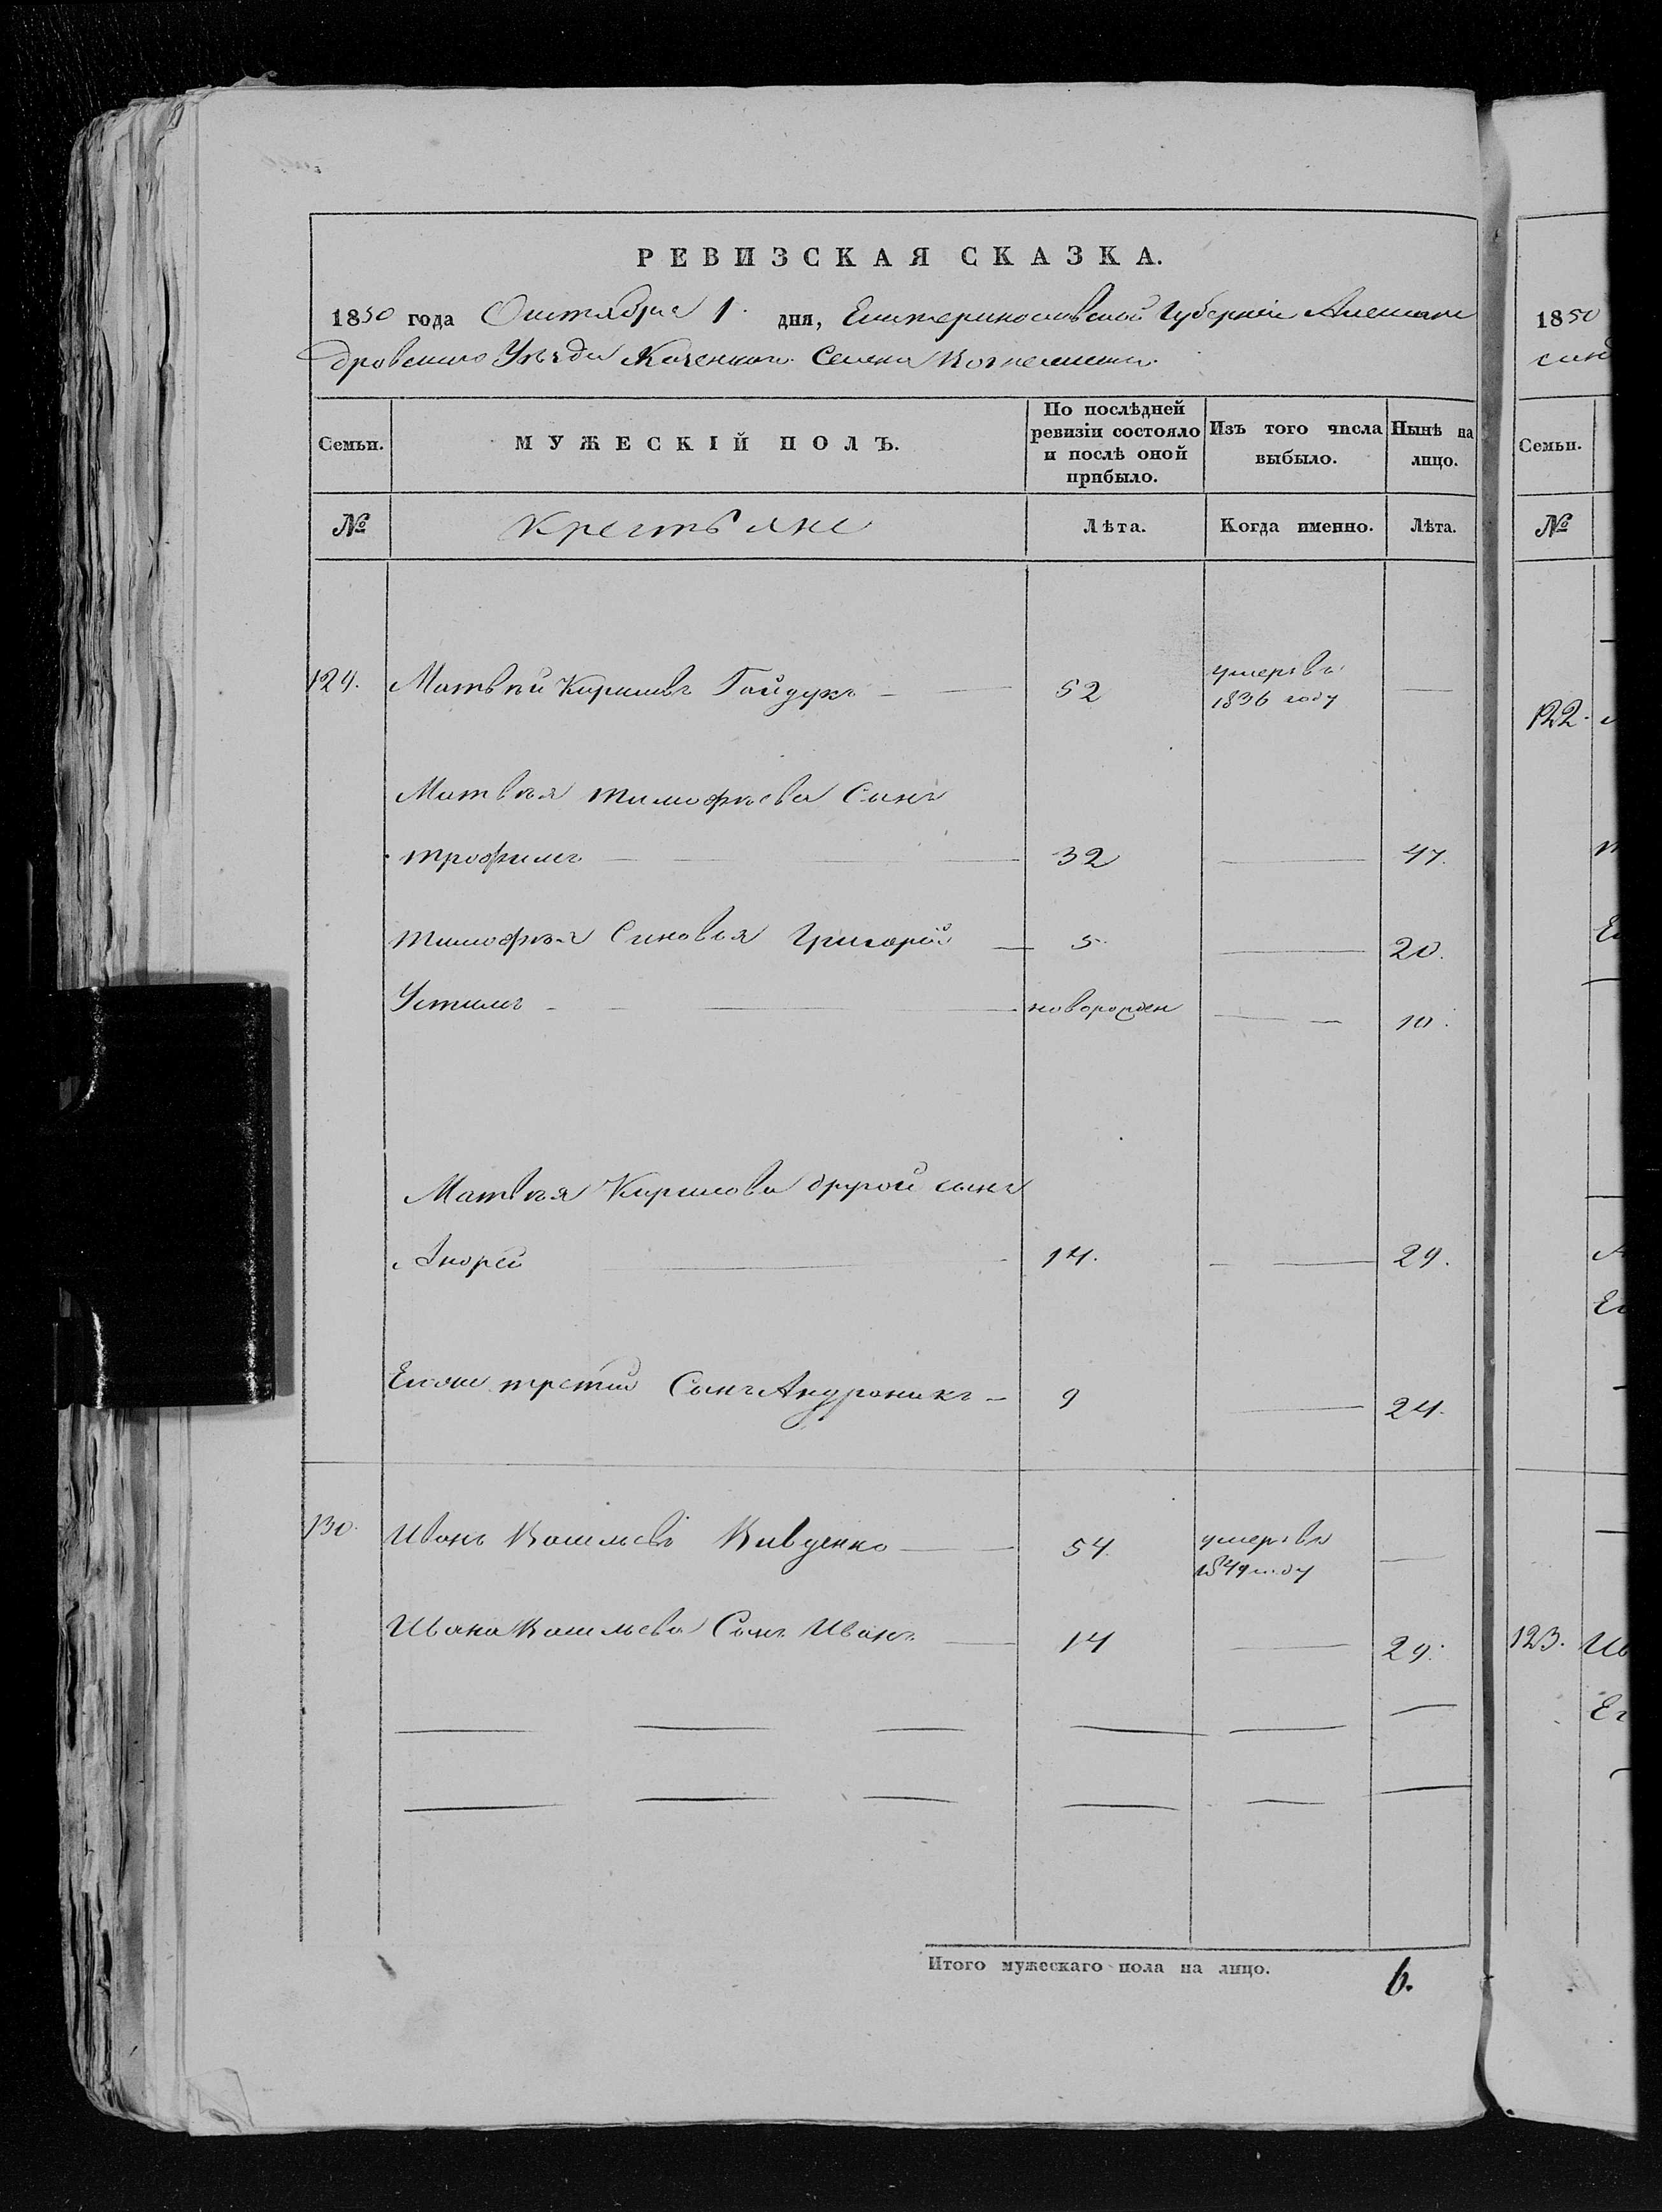 РЕВИЗСКАЯ СКАЗКА.
1850 года Октября 1. дня, Екатеринославской Губерніи Алексан
дровскаго Уѣзда Казеннаго Селенія
Семьи. МУЖЕСКІЙ ПОЛЪ. По послѣдней ревизіи состояло и послѣ оной прибыло. Изъ того числа выбыло. Нынѣ на лицо.
№ Крестьяне Лѣта. Когда именно. Лѣта.
129. Матвѣй Кириловъ Гайдукъ 52 умеръ въ 1836 году
Матвѣя Тимофѣева Сынъ
Трофимъ 32 47.
Тимофѣя Синовья Григорій 5. 20.
Устимъ новорожден 10.
Матвѣя Кирилова другой сынъ
Андрей 14. 29.
Егоже третій Сынъ Андроникъ 9 24.
130. Иванъ Васильевъ Вивденко 54. умеръ въ 1849 году
Ивана Васильева Сынъ Иванъ 14 29.
Итого мужескаго пола на лицо. 6.
1850
Семьи.
№
122.
123.